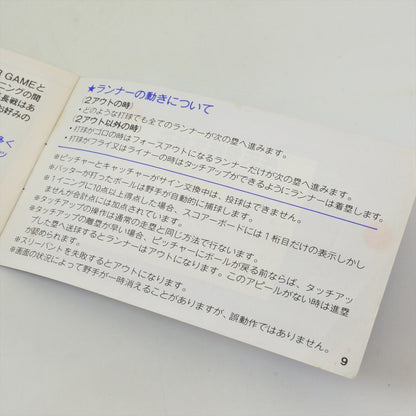 R GAMEと
ニングの間
長戦はあ
お好みの
★ランナーの動きについて
(2アウトの時)
・どのような打球でも全てのランナーが次の塁へ進みます。
(2アウト以外の時)
・打球がゴロの時はフォースアウトになるランナーだけが次の塁へ進みます。
・打球がフライ又はライナーの時はタッチアップができるようにランナーは着塁します。
※ピッチャーとキャッチャーがサイン交換中は、投球はできません。
※バッターが打ったボールは野手が自動的に捕球します。
※1イニングに10点以上得点した場合、スコアーボードには1桁目だけの表示しかし
ませんが合計点には加点されています。
※タッチアップの操作は通常の走塁と同じ方法で行ないます。
※タッチアップの離塁が早い場合、ピッチャーにボールが戻る前ならば、タッチアッ
プした塁へ送球するとランナーはアウトになります。このアピールがない時は進塁
が認められます。
※スリーバントを失敗するとアウトになります。
※画面の状況によって野手が一時消えることがありますが、誤動作ではありません。
9